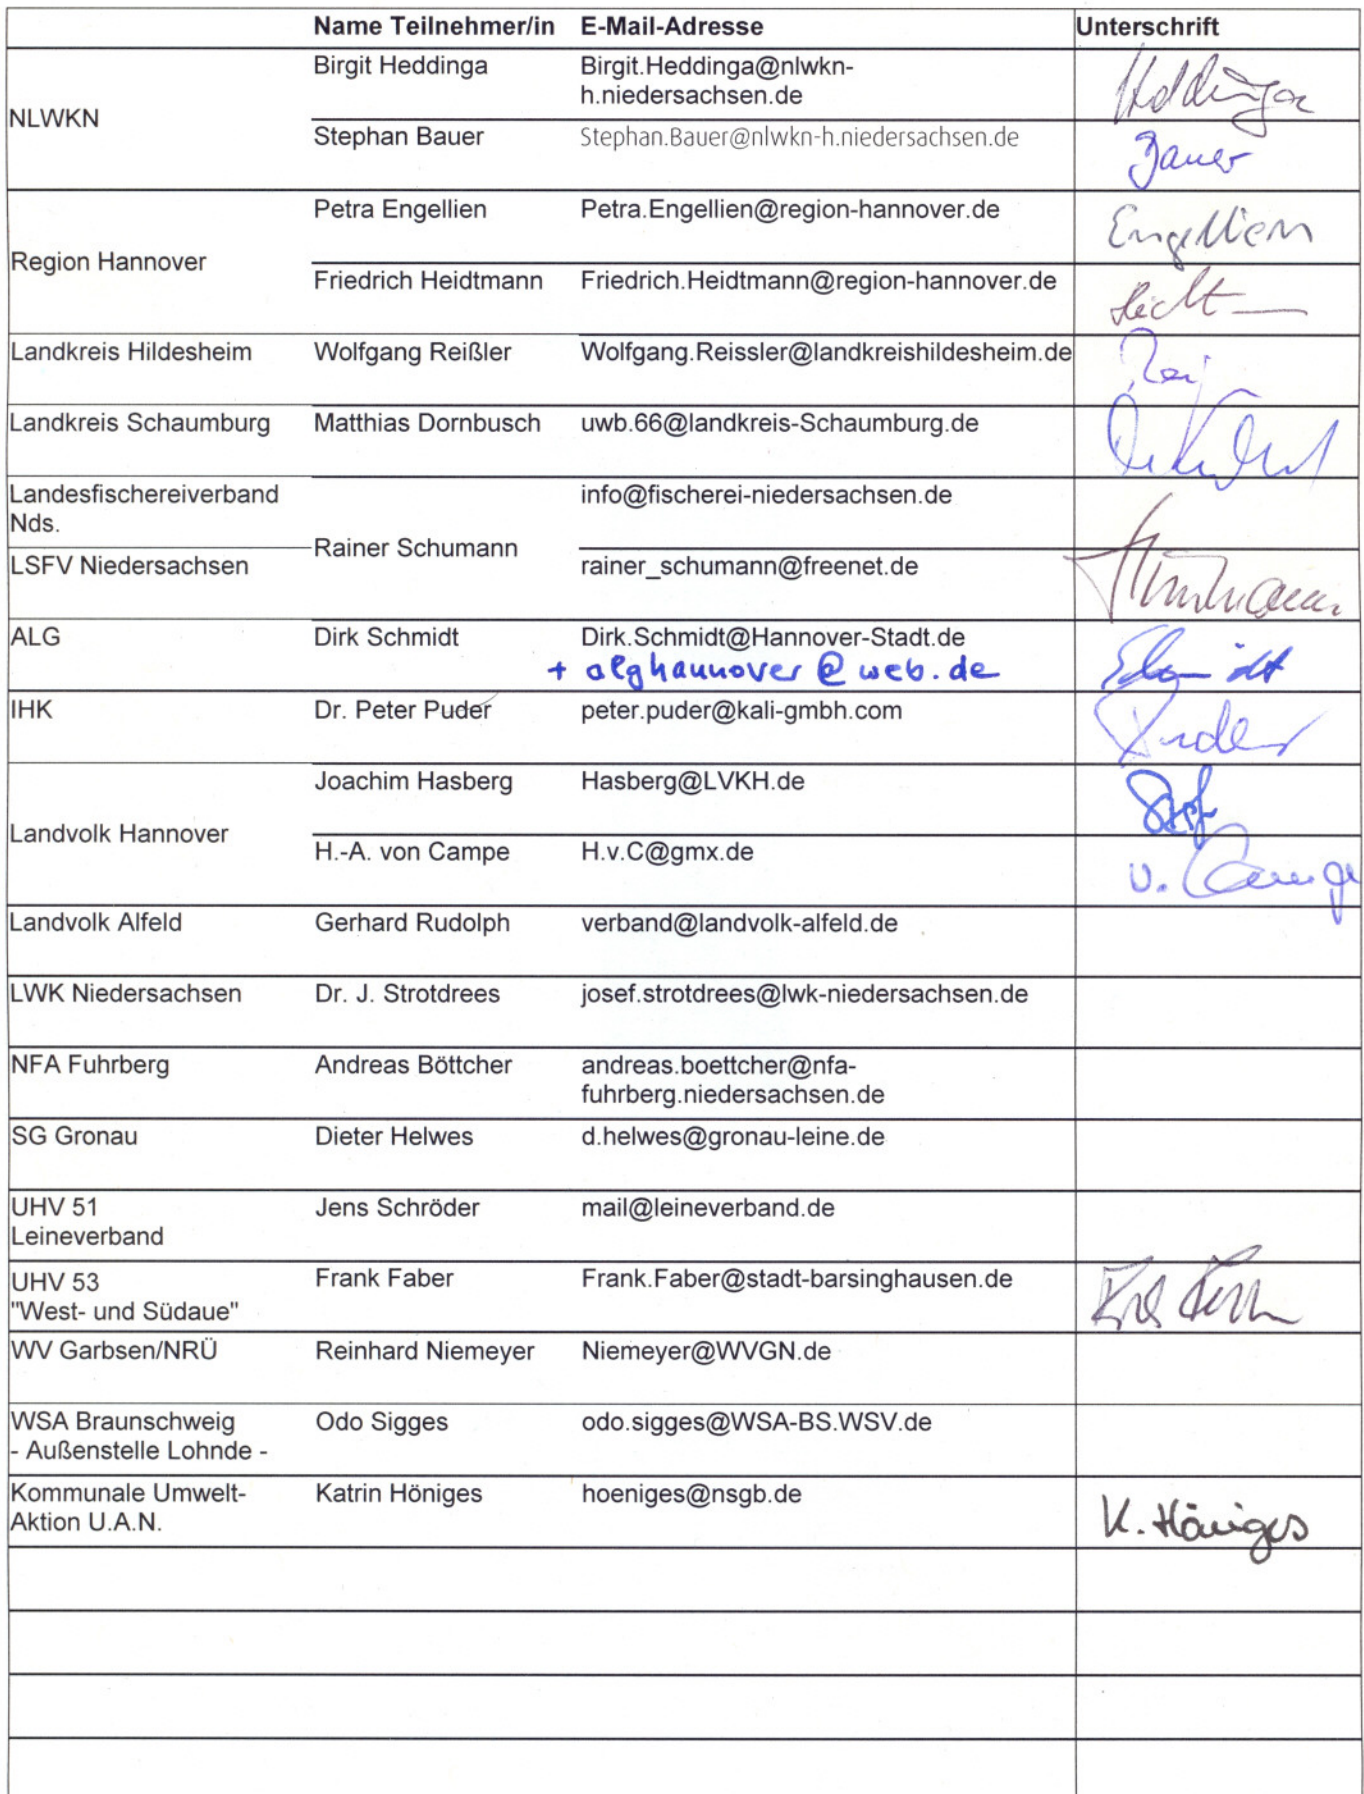 Name Teilnehmer/in E-Mail-Adresse Unterschrift
NLWKN
Birgit Heddinga Birgit.Heddinga@nlwkn-
h.niedersachsen.de Heddinga
Stephan Bauer Stephan.Bauer@nlwkn-h.niedersachsen.de Bauer
Region Hannover
Petra Engellien Petra.Engellien@region-hannover.de Engellien
Friedrich Heidtmann Friedrich.Heidtmann@region-hannover.de
Landkreis Hildesheim Wolfgang Reißler Wolfgang.Reissler@landkreishildesheim.de
Landkreis Schaumburg Matthias Dornbusch uwb.66@landkreis-Schaumburg.de
Landesfischereiverband
Nds.
info@fischerei-niedersachsen.de
Rainer Schumann
LSFV Niedersachsen rainer_schumann@freenet.de Schumann
ALG Dirk Schmidt Dirk.Schmidt@Hannover-Stadt.de
+ alghannover@web.de Schmidt
IHK Dr. Peter Puder peter.puder@kali-gmbh.com Puder
Landvolk Hannover
Joachim Hasberg Hasberg@LVKH.de
H.-A. von Campe H.v.C@gmx.de v. Campe
Landvolk Alfeld Gerhard Rudolph verband@landvolk-alfeld.de
LWK Niedersachsen Dr. J. Strotdrees josef.strotdrees@lwk-niedersachsen.de
NFA Fuhrberg Andreas Böttcher andreas.boettcher@nfa-
fuhrberg.niedersachsen.de
SG Gronau Dieter Helwes d.helwes@gronau-leine.de
UHV 51 Jens Schröder mail@leineverband.de
Leineverband
UHV 53 Frank Faber Frank.Faber@stadt-barsinghausen.de
"West- und Südaue"
WV Garbsen/NRÜ Reinhard Niemeyer Niemeyer@WVGN.de
WSA Braunschweig Odo Sigges odo.sigges@WSA-BS.WSV.de
- Außenstelle Lohnde -
Kommunale Umwelt- Katrin Höniges hoeniges@nsgb.de
Aktion U.A.N. K. Höniges